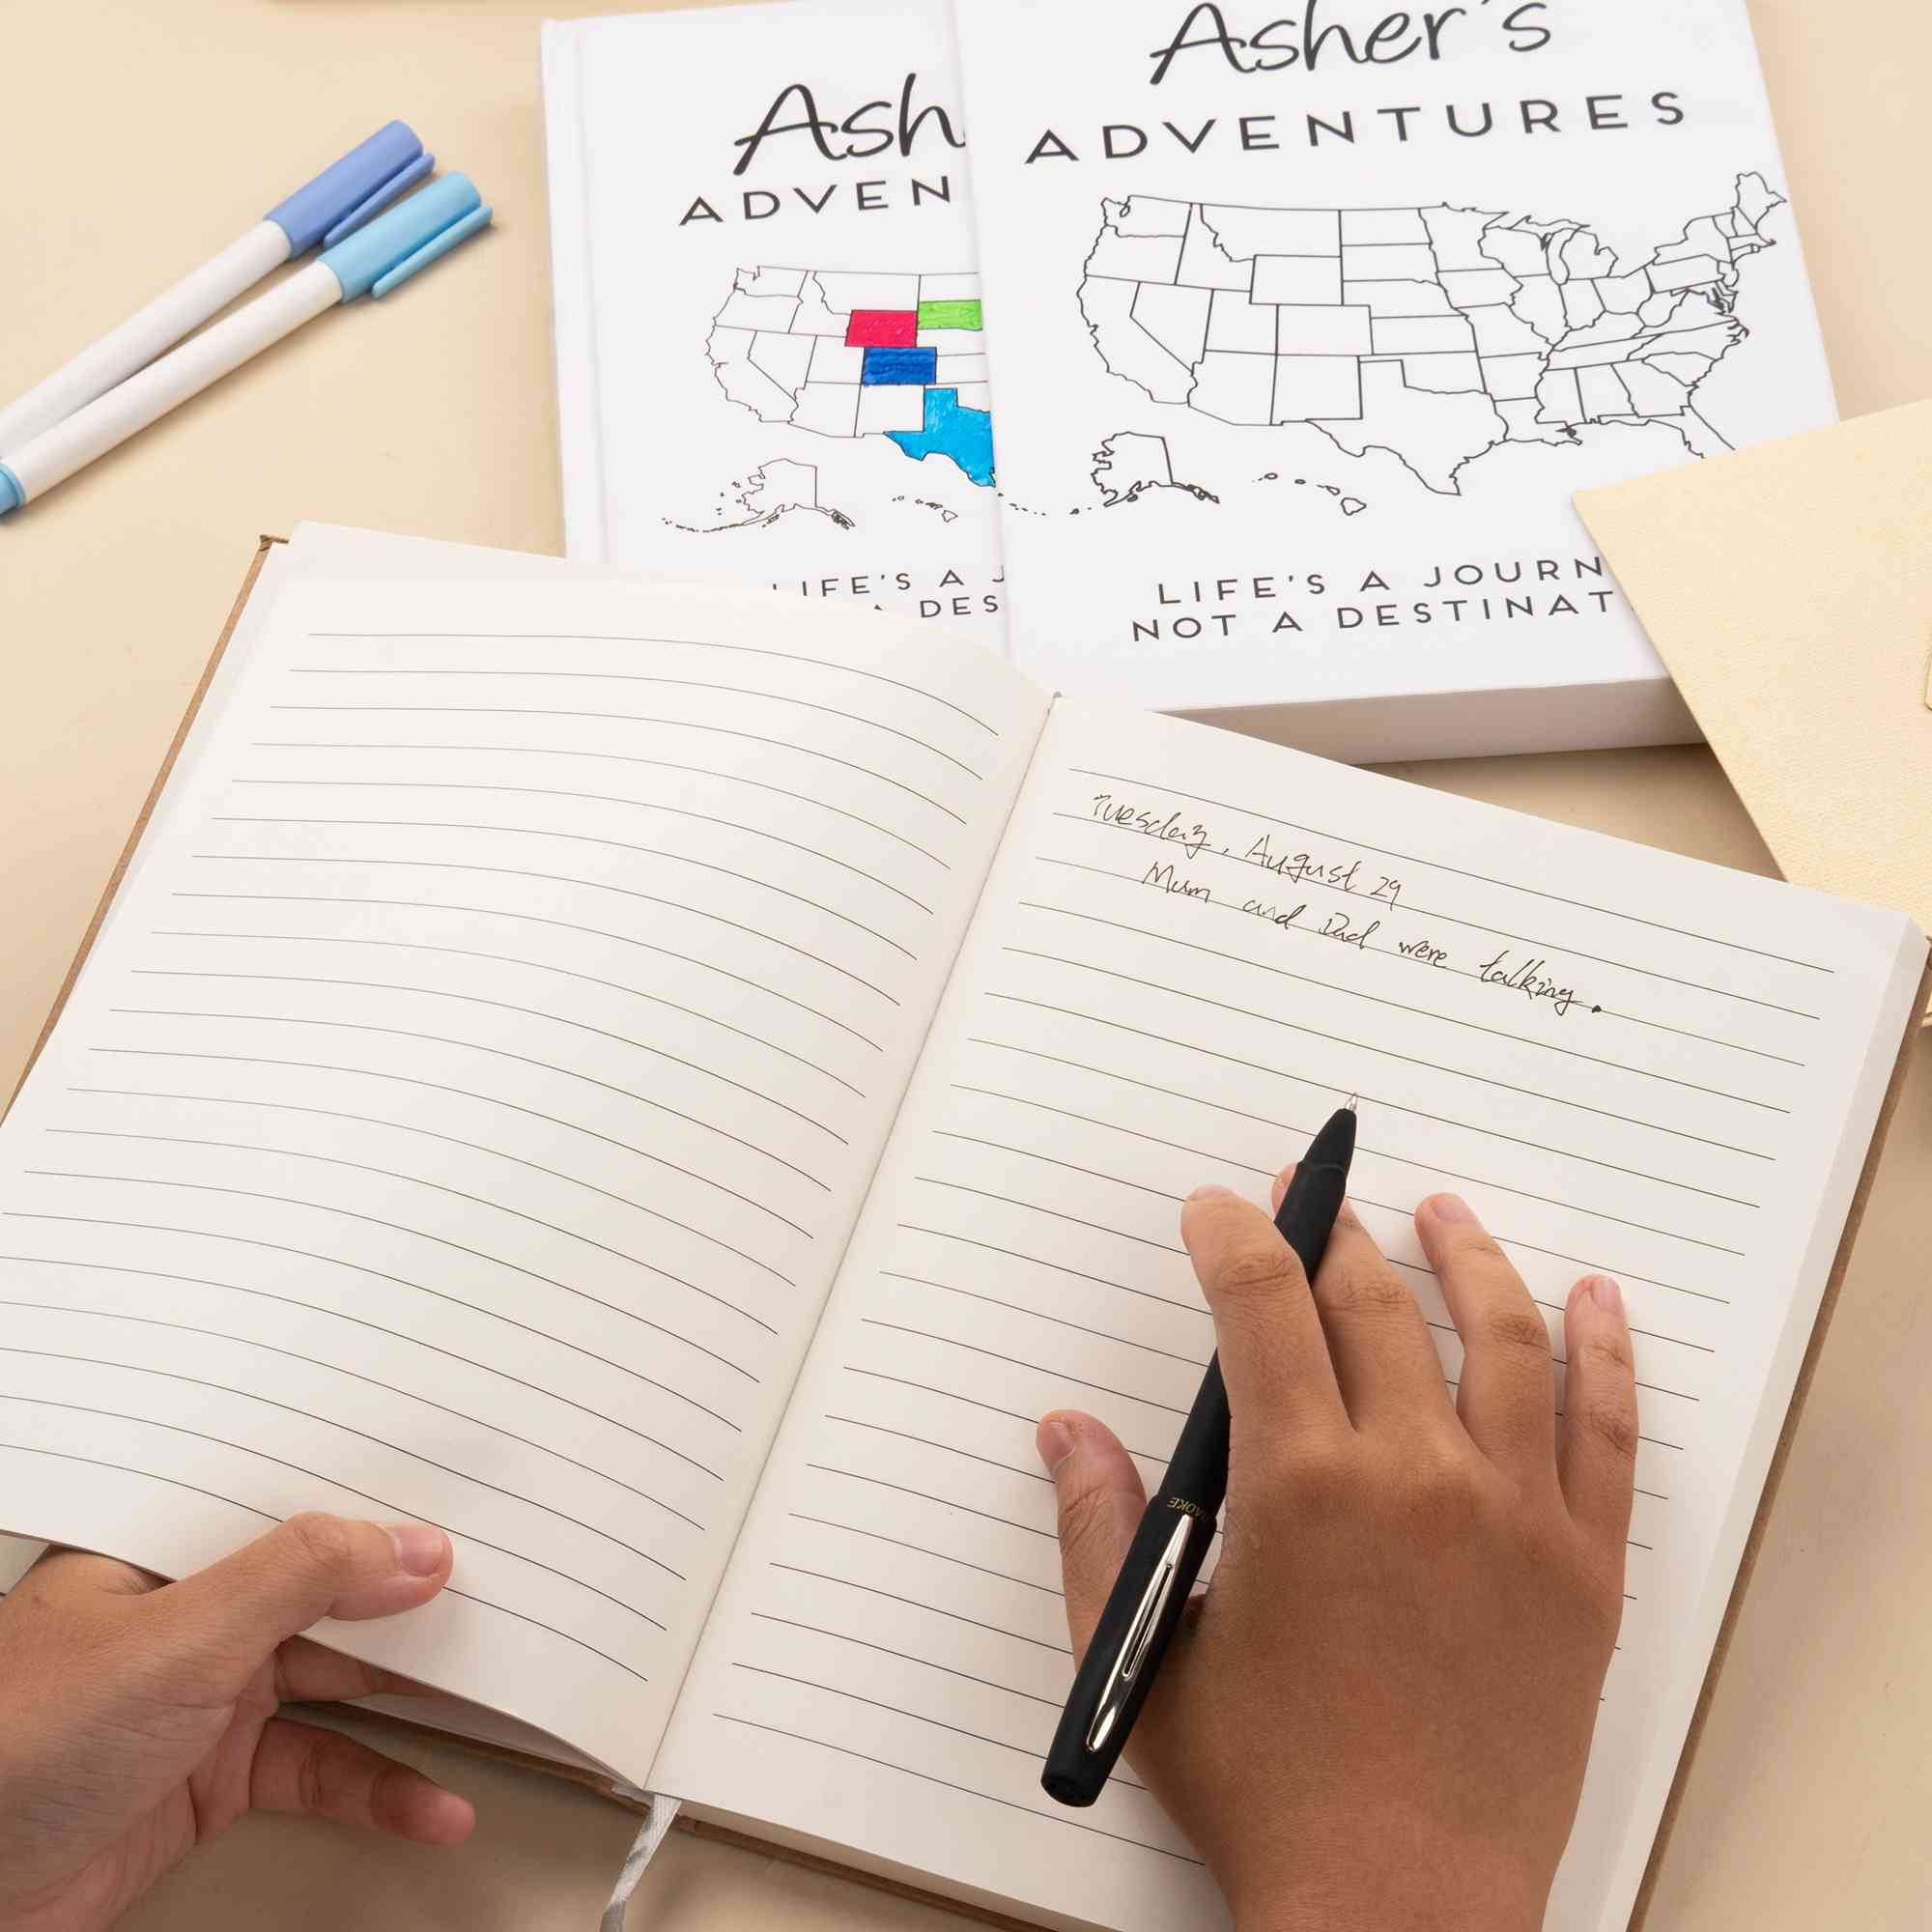 Asher's
ADVENTURES
LIFE'S A JOURN
NOT A DESTINAT
Ash
ADVEN
LIFE'S A J
A DES
Tuesday, August 29
Mum and Dad were talking.